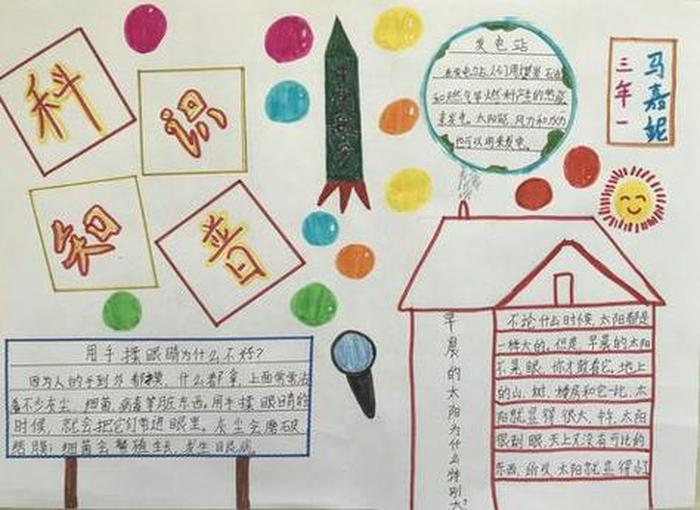 科
识
知
普
发电站
在发电站,人们用煤炭 石油
和天然气等燃料产生的热能
来发电。太阳能、风力和水力
也可以用来发电。
马嘉妮
三年一
用手揉眼睛为什么不好?
因为人的手到处都摸,什么都拿,上面常常沾
着不少灰尘、细菌、病毒等脏东西。用手揉眼睛的
时候,就会把它们带进眼里。灰尘会磨破
结膜;细菌会繁殖生长,发生眼病。
早晨的太阳为什么特别大?
不论什么时候,太阳都是
一样大的。但是,早晨的太阳
不晃眼,你才敢看它,地上
的山、树、楼房和它一比,太
阳就显得很大。中午,太阳
很刺眼,天上又没有可比的
东西,所以太阳就显得小了